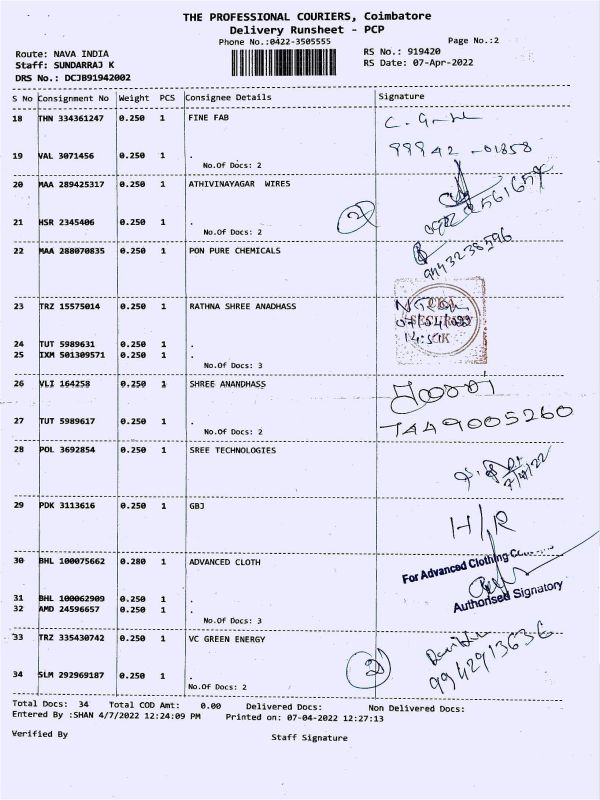 THE PROFESSIONAL COURIERS, Coimbatore
Delivery Runsheet - PCP
Phone No.:0422-3505555
Page No.:2
Route: NAVA INDIA
RS No.: 919420
Staff: SUNDARRAJ K
RS Date: 07-Apr-2022
DRS No.: DCJB91942002
S No Consignment No Weight PCS Consignee Details Signature
18 THN 334361247 0.250 1 FINE FAB
19 VAL 3071456 0.250 1 . 99942 -01858
No.Of Docs: 2
20 MAA 289425317 0.250 1 ATHIVINAYAGAR WIRES
21 HSR 2345406 0.250 1 . 2
No.Of Docs: 2
22 MAA 288070835 0.250 1 PON PURE CHEMICALS 9443238596
23 TRZ 15575014 0.250 1 RATHNA SHREE ANADHASS
24 TUT 5989631 0.250 1 .
25 IXM 501309571 0.250 1 .
No.Of Docs: 3
26 VLI 164258 0.250 1 SHREE ANANDHASS
27 TUT 5989617 0.250 1 . 7449005260
No.Of Docs: 2
28 POL 3692854 0.250 1 SREE TECHNOLOGIES 7/4/22
29 PDK 3113616 0.250 1 GBJ H/R
30 BHL 100075662 0.280 1 ADVANCED CLOTH For Advanced Clothing
31 BHL 100062909 0.250 1 . Authorised Signatory
32 AMD 24596657 0.250 1 .
No.Of Docs: 3
33 TRZ 335430742 0.250 1 VC GREEN ENERGY
34 SLM 292969187 0.250 1 . 2 9942913636
No.Of Docs: 2
Total Docs: 34 Total COD Amt: 0.00 Delivered Docs: Non Delivered Docs:
Entered By :SHAN 4/7/2022 12:24:09 PM Printed on: 07-04-2022 12:27:13
Verified By
Staff Signature